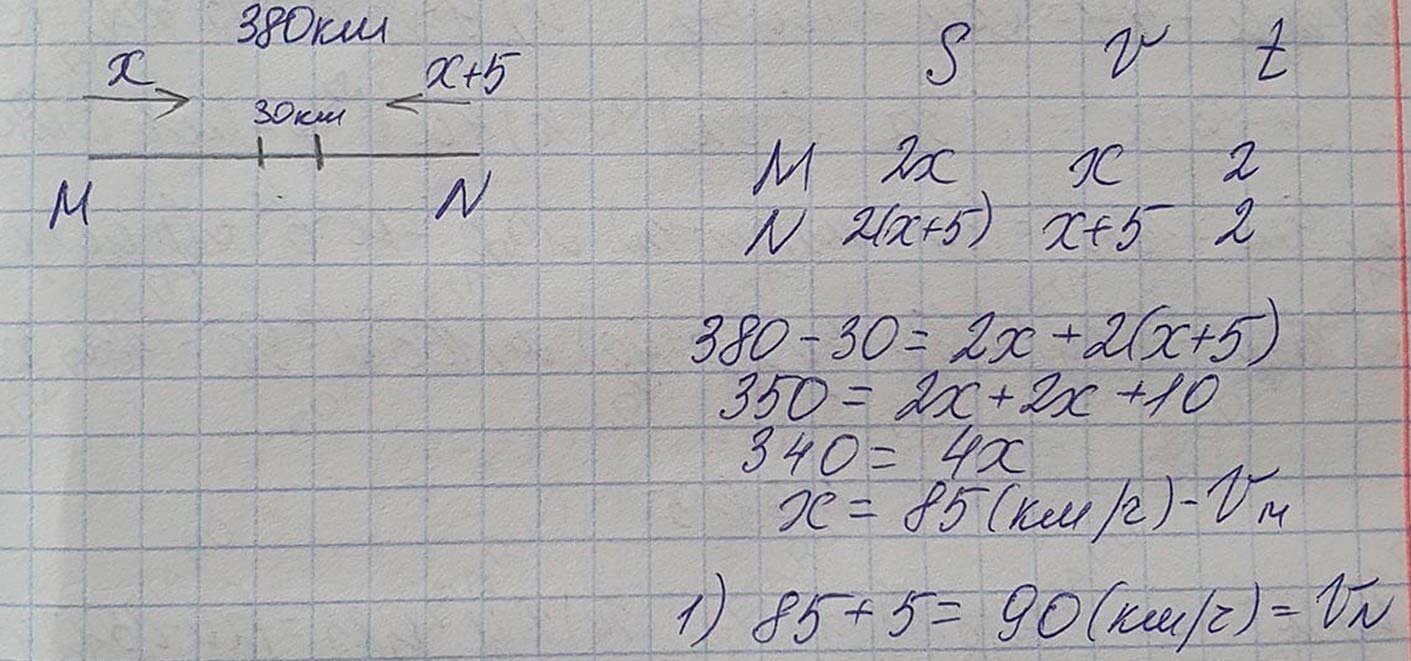 380км
x x+5
30км
M N
S V t
M 2x x 2
N 2(x+5) x+5 2
380-30= 2x+2(x+5)
350= 2x+2x+10
340= 4x
x= 85(км/г)-Vм
1) 85+5= 90(км/г)= VN